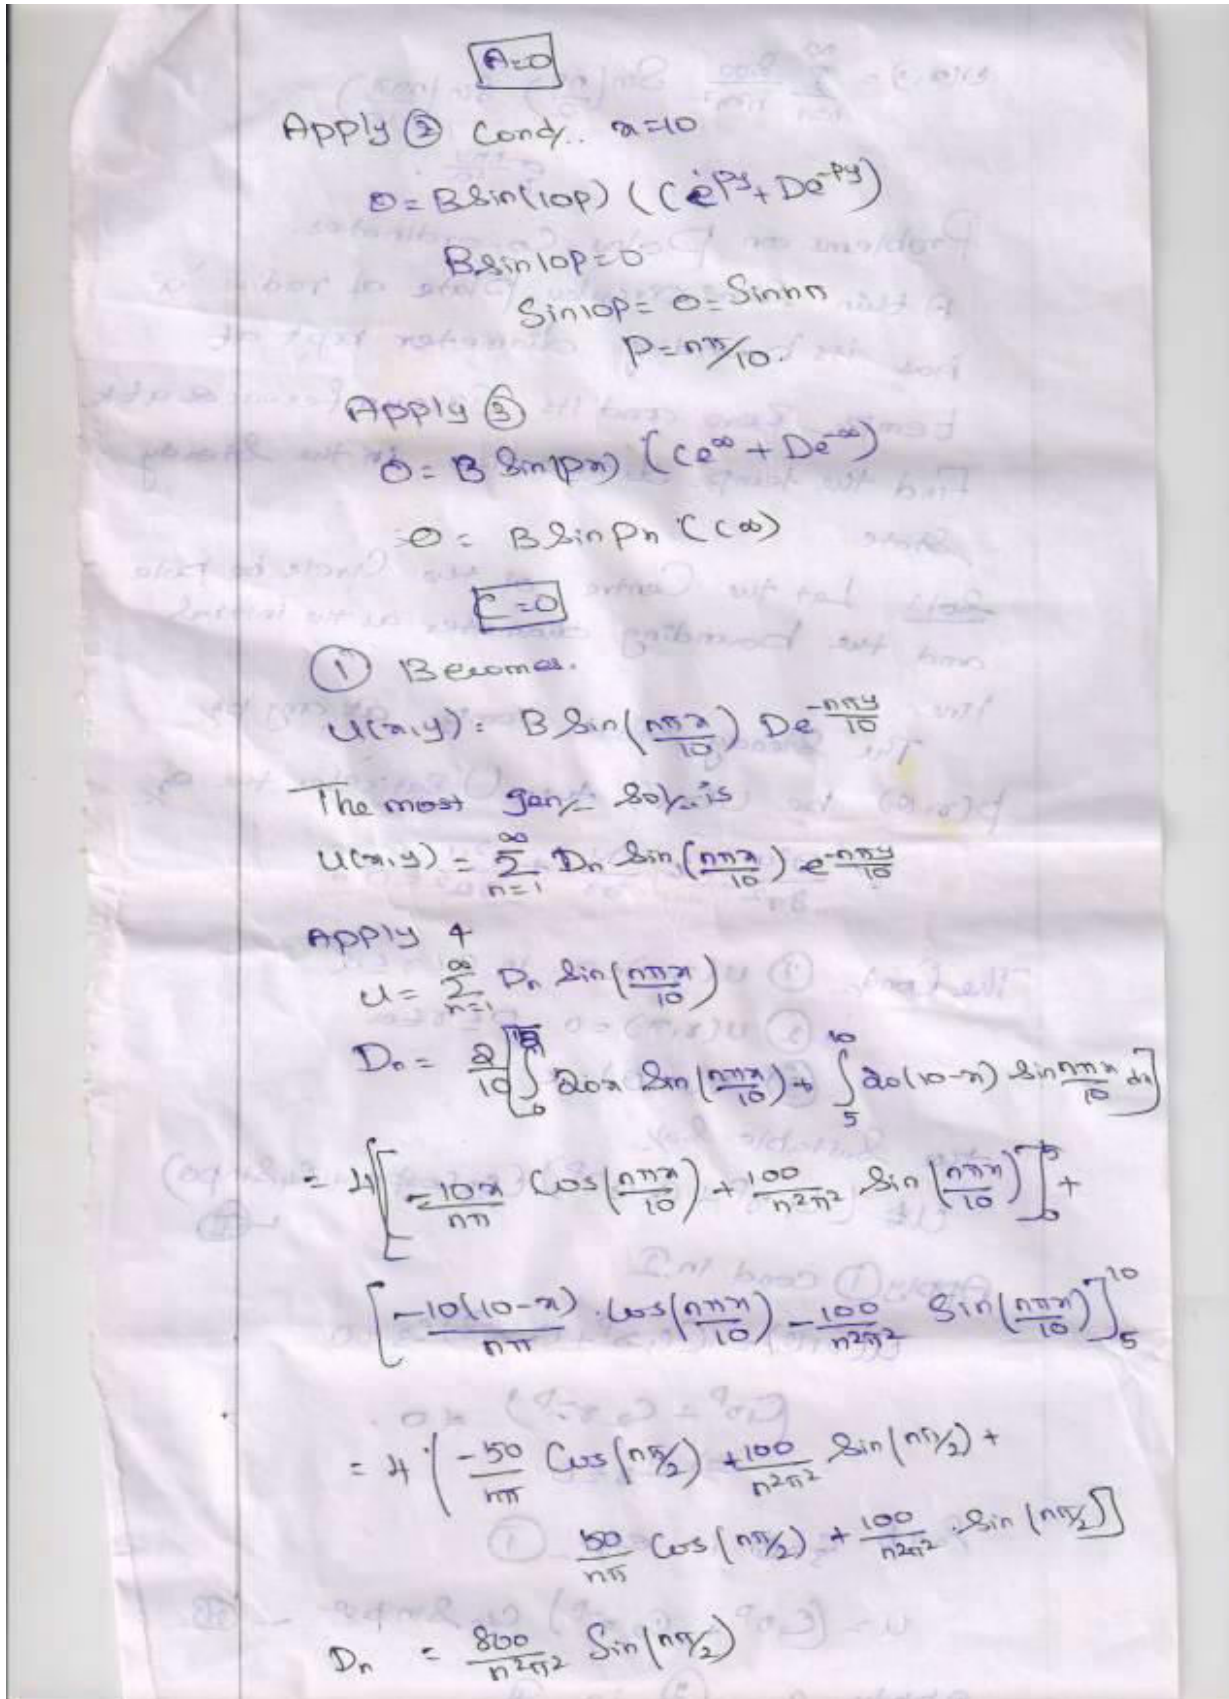 A=0
Apply ② Cond/.. x=10
0 = B Sin(10p) (Ce^{py} + De^{-py})
B sin10p = 0
Sin10p = 0 = Sin nπ
P = nπ/10.
Apply ③
0 = B Sin(px) (Ce^∞ + De^{-∞})
0 = B Sin px (C∞)
C=0
① Becomes.
U(x,y) = B Sin(nπx/10) De^{-nπy/10}
The most gen/- Sol/. is
U(x,y) = Σ_{n=1}^{∞} Dn Sin(nπx/10) e^{-nπy/10}
Apply 4
U = Σ_{n=1}^{∞} Dn Sin(nπx/10)
Dn = 2/10 [∫_0 20x Sin(nπx/10) + ∫_5^{10} 20(10-x) Sin nπx/10 dx]
= 4[[-10x/nπ Cos(nπx/10) + 100/n²π² Sin(nπx/10)]_0^5 +
[-10(10-x)/nπ . Cos(nπx/10) - 100/n²π² Sin(nπx/10)]_5^{10}
= 4 [-50/nπ Cos(nπ/2) + 100/n²π² Sin(nπ/2) +
50/nπ Cos(nπ/2) + 100/n²π² . Sin(nπ/2)]
Dn = 800/n²π² Sin(nπ/2)